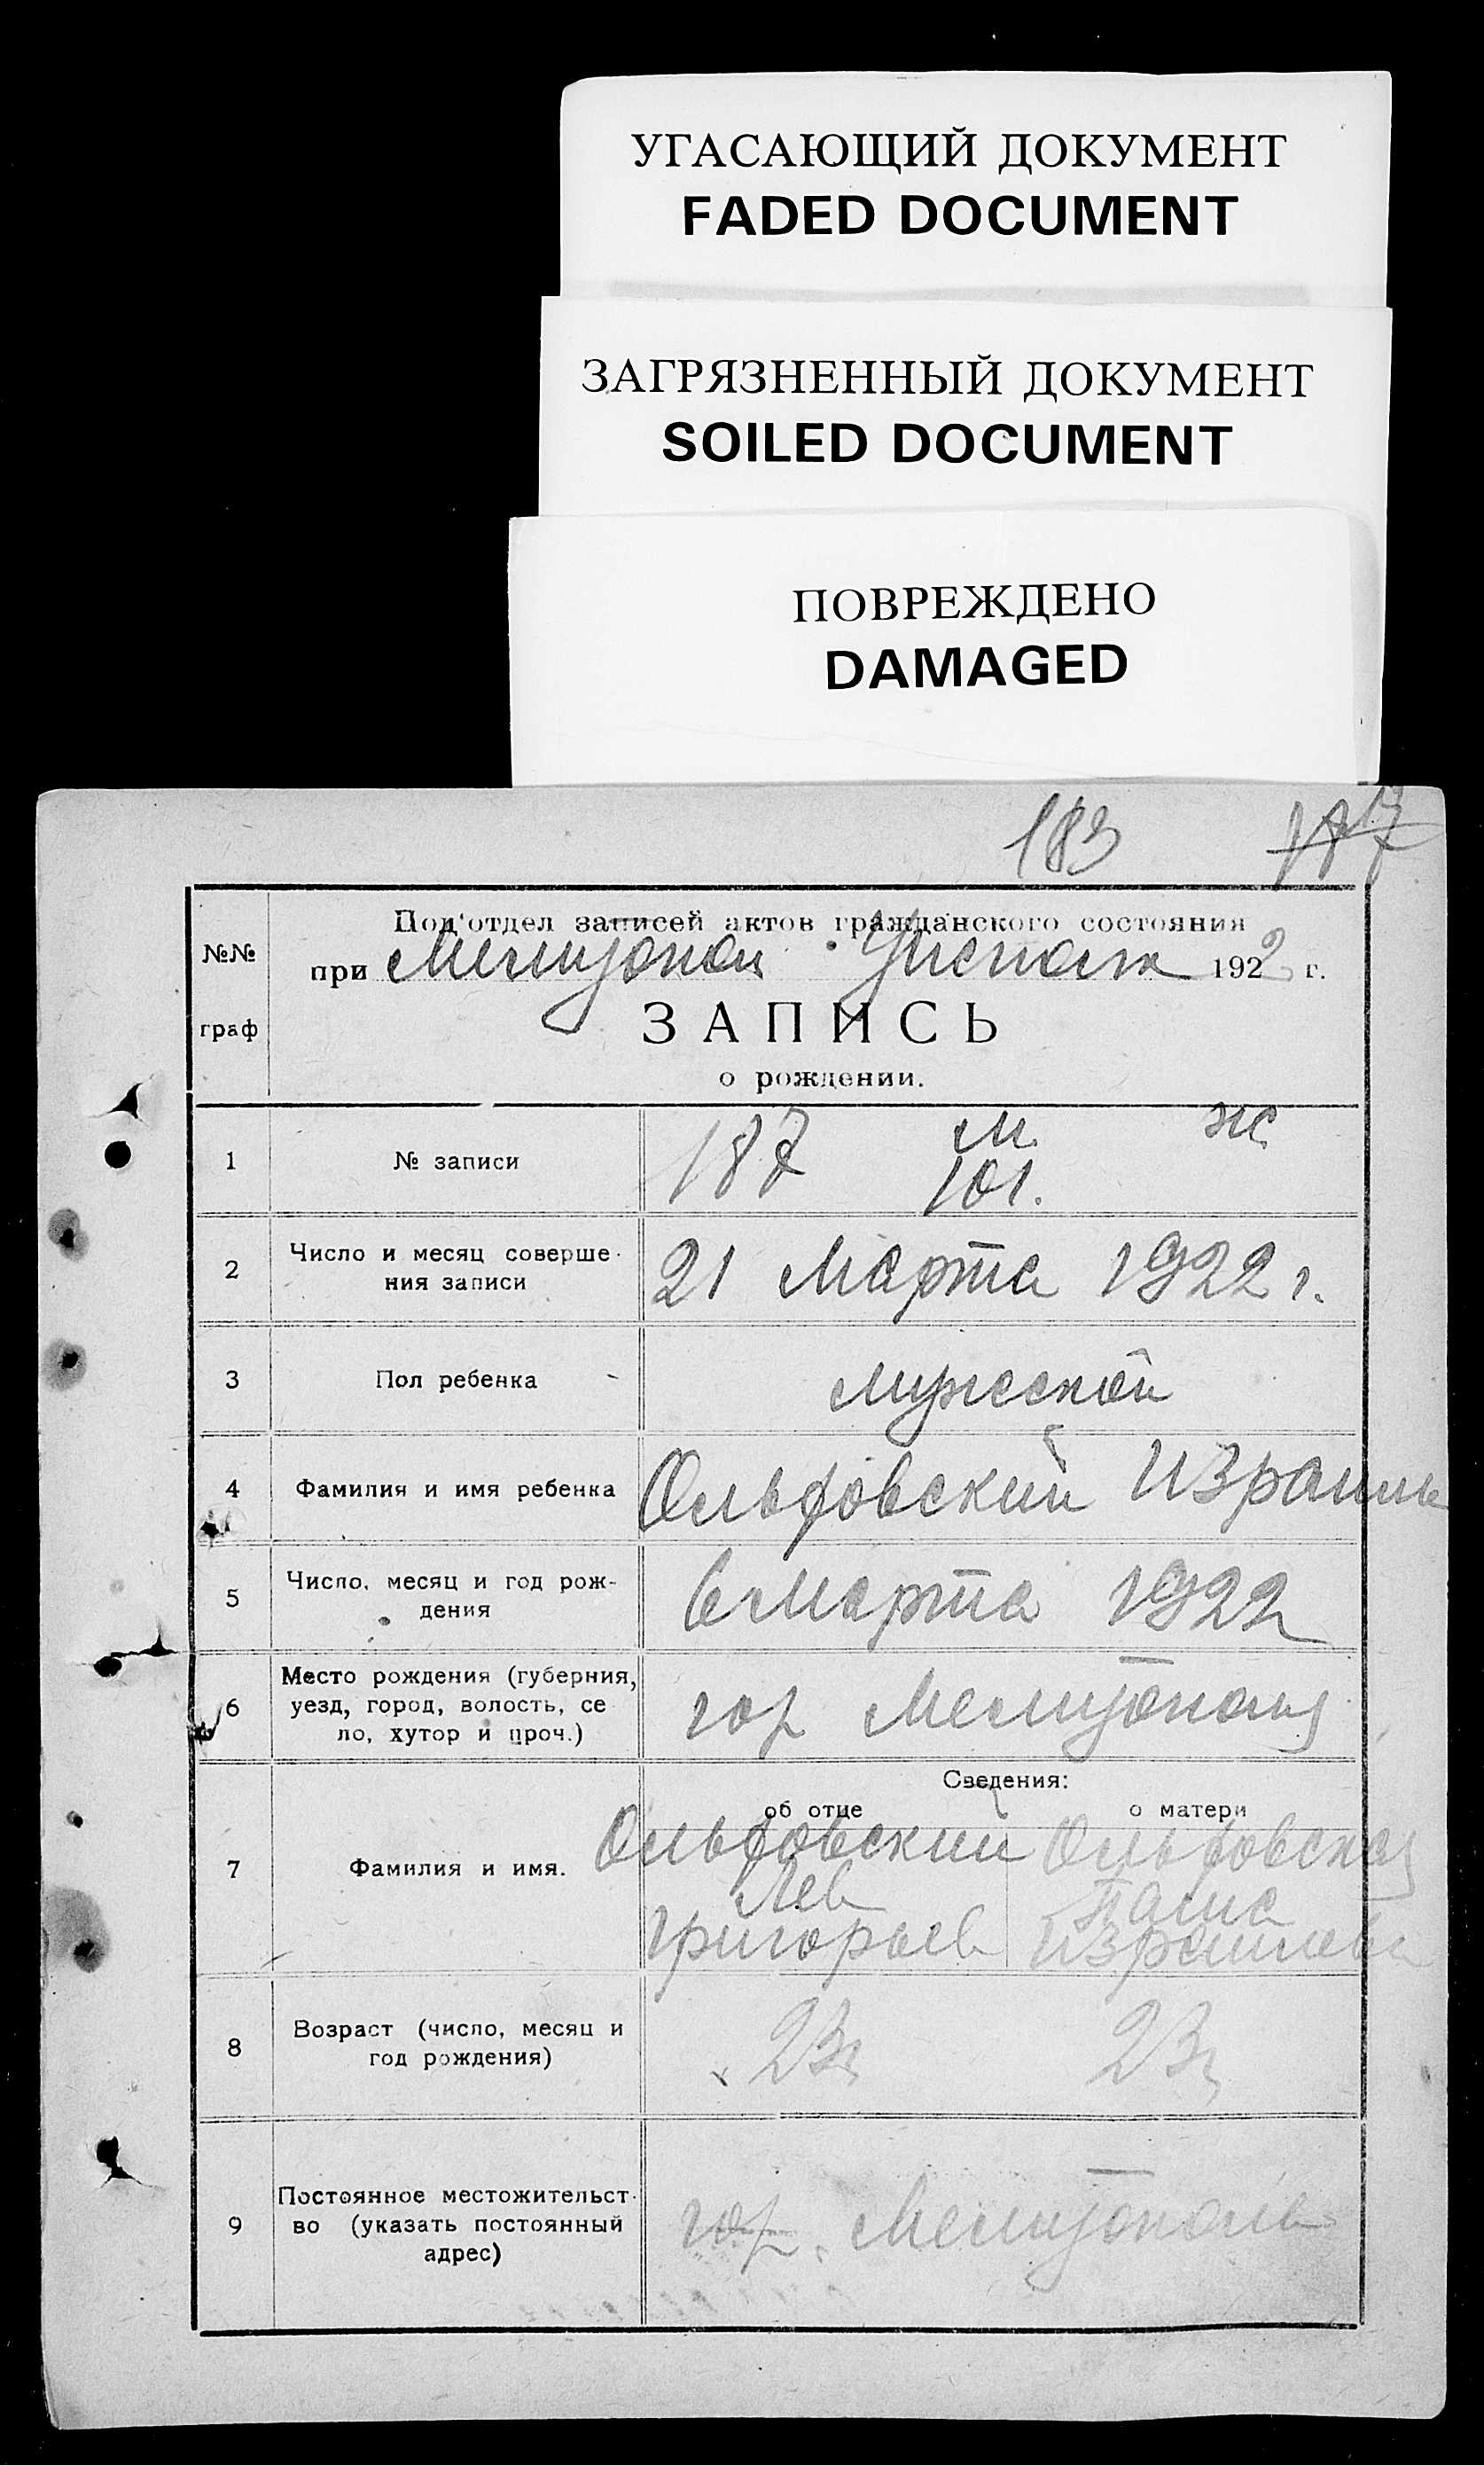 УГАСАЮЩИЙ ДОКУМЕНТ
FADED DOCUMENT
ЗАГРЯЗНЕННЫЙ ДОКУМЕНТ
SOILED DOCUMENT
ПОВРЕЖДЕНО
DAMAGED
183 187
№№ граф
Под'отдел записей актов гражданского состояния
при 1922 г.
ЗАПИСЬ
о рождении.
м. ж
1 № записи 187 101.
2 Число и месяц соверше-
ния записи 21 марта 1922 г.
3 Пол ребенка мужской
4 Фамилия и имя ребенка Ольфовский Израиль
5 Число, месяц и год рож-
дения 6 марта 1922
Место рождения (губерния,
6 уезд, город, волость, се
ло, хутор и проч.) гор Мелитополь
Сведения:
об отце о матери
7 Фамилия и имя. Ольфовский Ольфовская
Лев
Григорьев Израилева
8 Возраст (число, месяц и
год рождения) 23 23
Постоянное местожительст-
9 во (указать постоянный
адрес) гор. Мелитополь